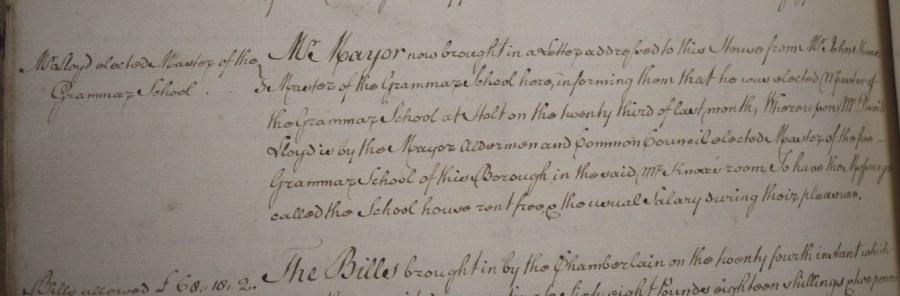 Mr. Lloyd elected Master of the
Grammar School.
Mr. Mayor now brought in a Letter addressed to this House from Mr. John
Master of the Grammar School here, informing them that he was elected Master of
the Grammar School at Holt on the twenty third of last month, Whereupon Mr. David
Lloyd is by the Mayor Aldermen and Common Council elected Master of the free
Grammar School of this Borough in the said Mr. Knox's room To have the Messuage
called the School house rent free, & the usual Salary during their pleasure.
Bills allowed £68..18..2..
The Bills brought in by the Chamberlain on the twenty fourth instant which
sixty eight Pounds eighteen shillings & two pence